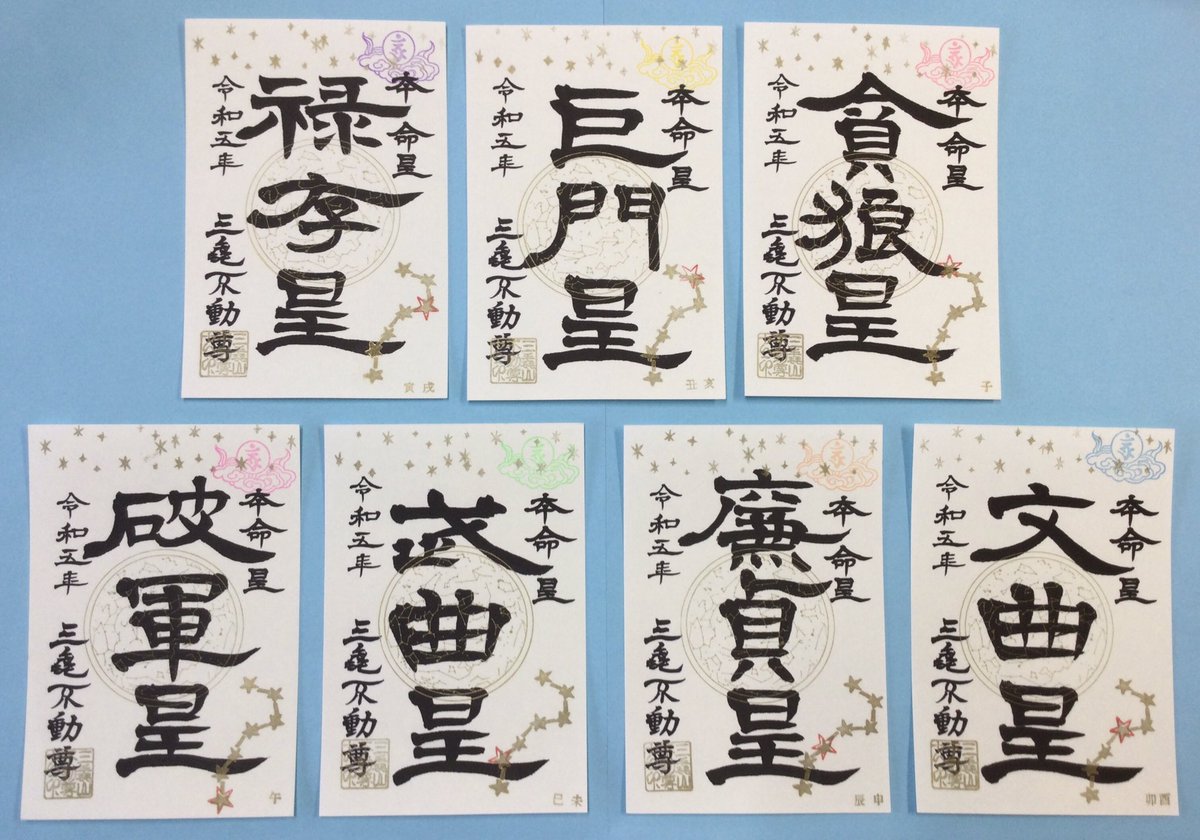 本命星
貪狼星
令和五年
三亀不動尊
子
本命星
巨門星
令和五年
三亀不動尊
丑亥
本命星
禄存星
令和五年
三亀不動尊
寅戌
本命星
文曲星
令和五年
三亀不動尊
卯酉
本命星
廉貞星
令和五年
三亀不動尊
辰申
本命星
武曲星
令和五年
三亀不動尊
巳未
本命星
破軍星
令和五年
三亀不動尊
午